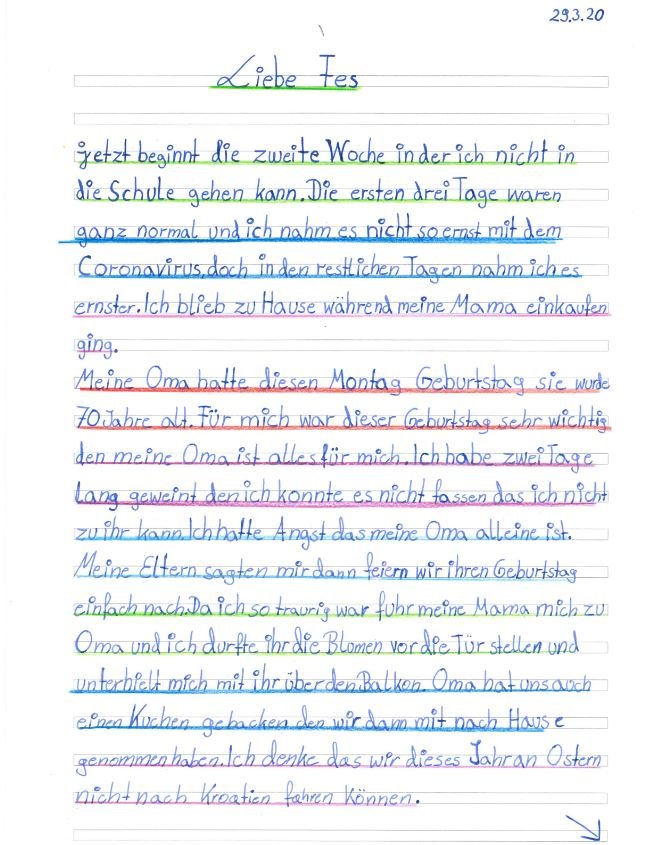 29.3.20
Liebe Fes
jetzt beginnt die zweite Woche in der ich nicht in
die Schule gehen kann. Die ersten drei Tage waren
ganz normal und ich nahm es nicht so ernst mit dem
Coronavirus, doch in den restlichen Tagen nahm ich es
ernster. Ich blieb zu Hause während meine Mama einkaufen
ging.
Meine Oma hatte diesen Montag Geburtstag sie wurde
70 Jahre alt. Für mich war dieser Geburtstag sehr wichtig
den meine Oma ist alles für mich. Ich habe zwei Tage
Lang geweint den ich konnte es nicht fassen das ich nicht
zu ihr kann. Ich hatte Angst das meine Oma alleine ist.
Meine Eltern sagten mir dann feiern wir ihren Geburtstag
einfach nach. Da ich so traurig war fuhr meine Mama mich zu
Oma und ich durfte ihr die Blomen vor die Tür stellen und
unterhielt mich mit ihr über den Balkon. Oma hat uns auch
einen Kuchen gebacken den wir dann mit nach Hause
genommen haben. Ich denke das wir dieses Jahr an Ostern
nicht nach Kroatien fahren können.